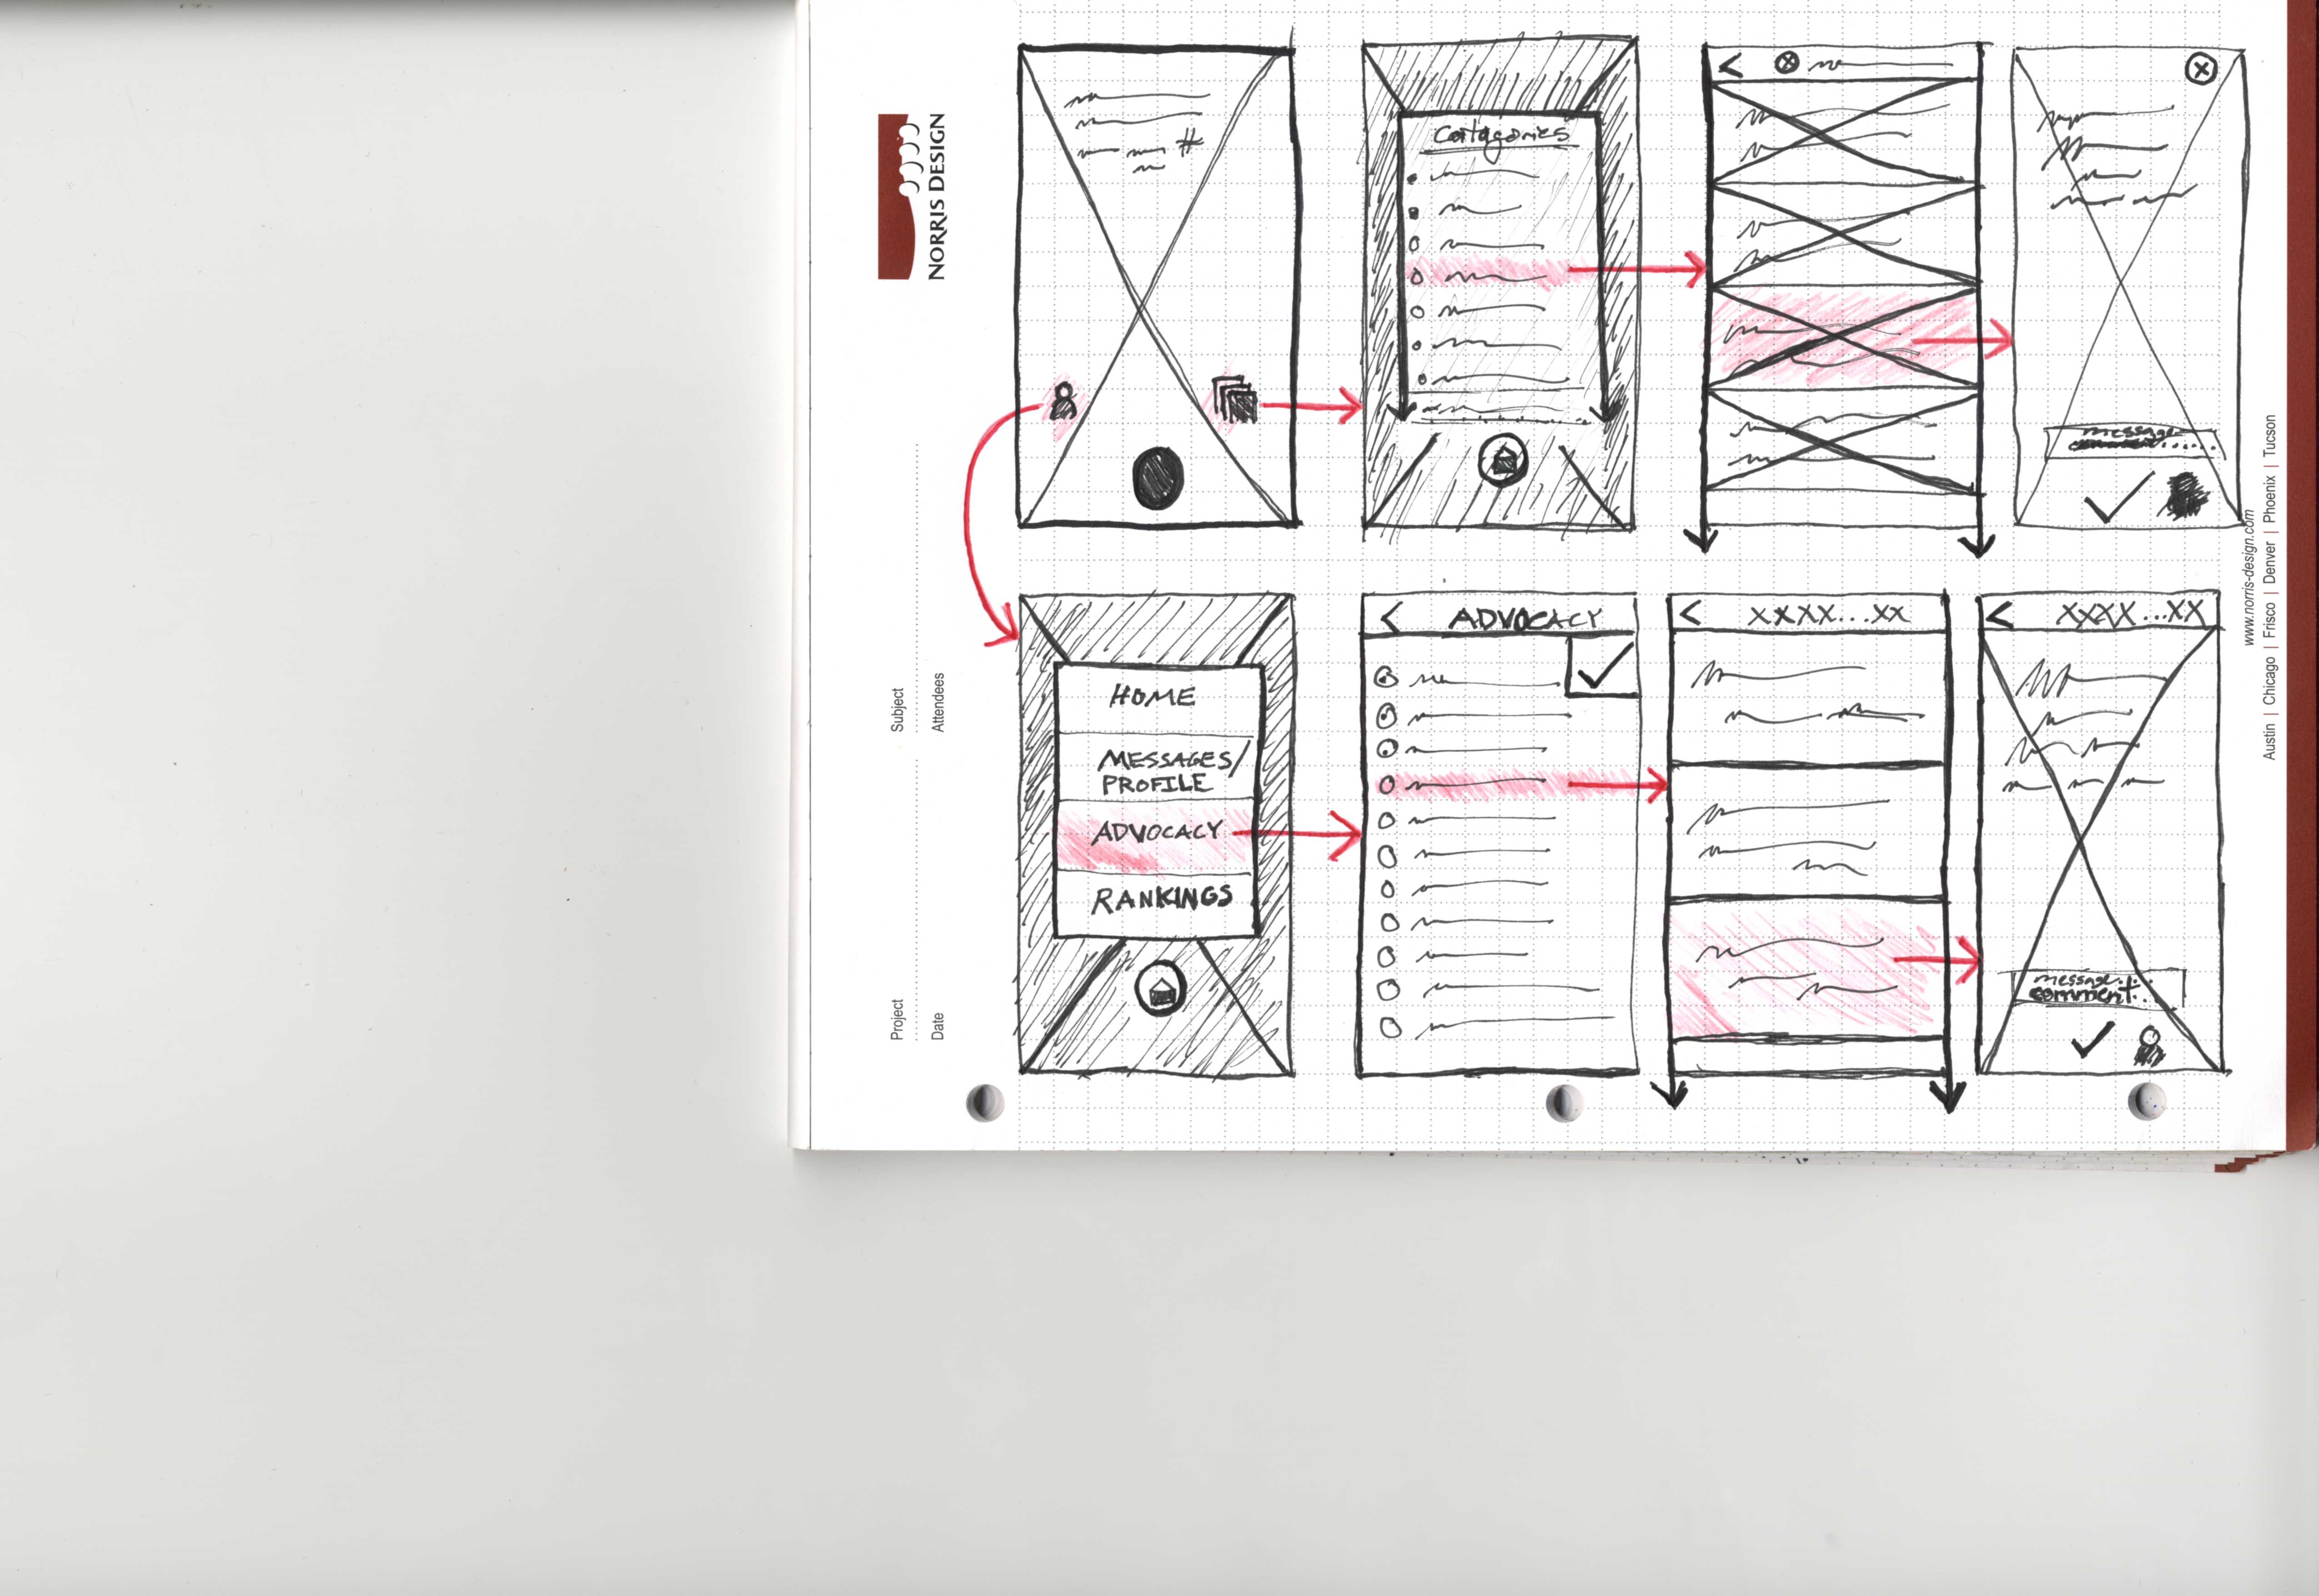 NORRIS DESIGN
Project
Subject
Date
Attendees
#
Catagories
message
HOME
MESSAGES/
PROFILE
ADVOCACY
RANKINGS
ADVOCACY
XXXX...XX
XXXX...XX
message...
comment..
www.norris-design.com
Austin | Chicago | Frisco | Denver | Phoenix | Tucson